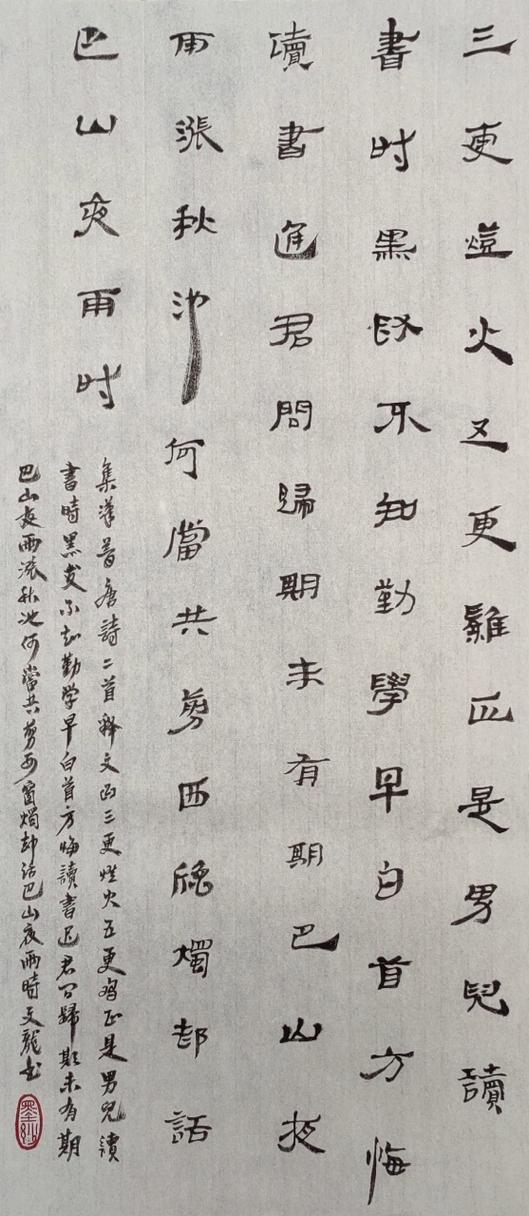 三更燈火五更雞正是男兒讀
書时黑髮不知勤學早白首方悔
讀書遲君問歸期未有期巴山夜
雨漲秋池何當共剪西牕燭却話
巴山夜雨时
集漢唐詩二首释文曰三更燈火五更鸡正是男兒讀
書時黑发不知勤学早白首方悔讀書迟君问歸期未有期
巴山夜雨涨秋池何當共剪西窗燭却话巴山夜雨時文龍书